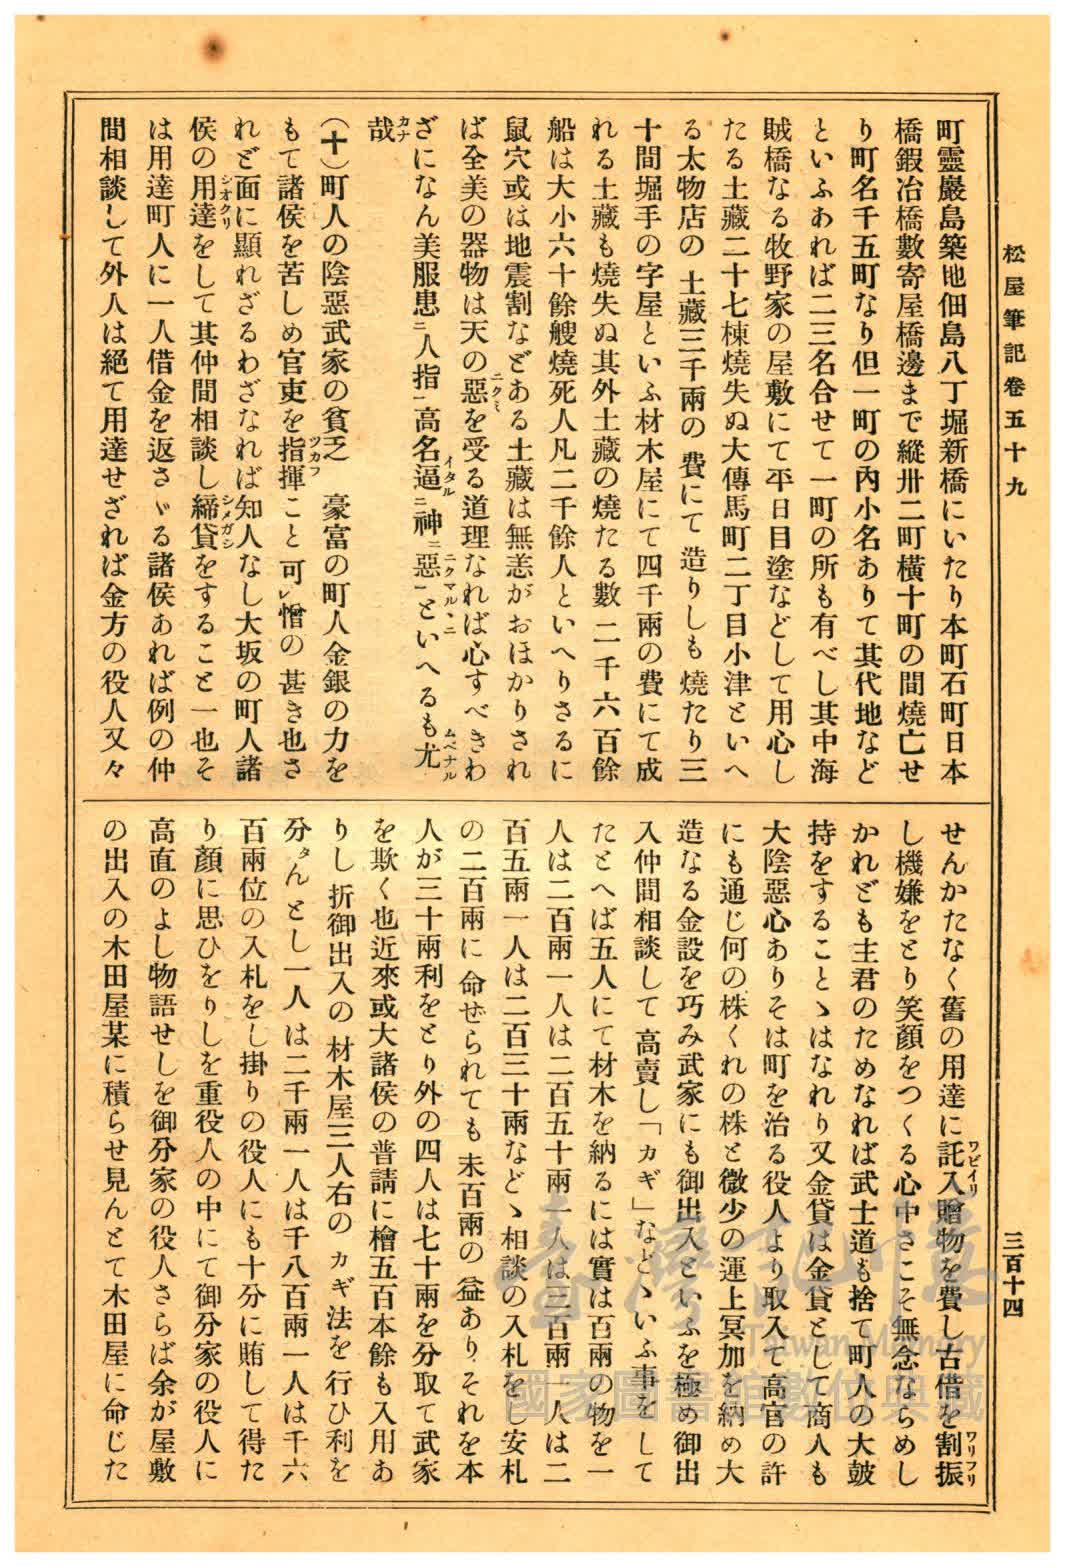 松屋筆記卷五十九
三百十四
町靈巖島築地佃島八丁堀新橋にいたり本町石町日本
橋鍜冶橋數寄屋橋邊まで縱卅二町橫十町の間燒亡せ
り町名千五町なり但一町の內小名ありて其代地など
といふあれば二三名合せて一町の所も有べし其中海
賊橋なる牧野家の屋敷にて平日目塗などして用心し
たる土藏二十七棟燒失ぬ大傳馬町二丁目小津といへ
る太物店の土藏三千兩の費にて造りしも燒たり三
十間堀手の字屋といふ材木屋にて四千兩の費にて成
れる土藏も燒失ぬ其外土藏の燒たる數二千六百餘
船は大小六十餘艘燒死人凡二千餘人といへりさるに
鼠穴或は地震割などある土藏は無恙がおほかりされ
ば全美の器物は天の惡ニクミを受る道理なれば心すべきわ
ざになん美服患ニ人指一高名逼イタルニ神ニ惡ニクマルヽニ一といへるも尤ムベナル
哉カナ
(十)町人の陰惡武家の貧乏 豪富の町人金銀の力を
もて諸侯を苦しめ官吏を指揮ツカフこと可レ憎の甚き也さ
れど面に顯れざるわざなれば知人なし大坂の町人諸
侯の用達シオクリをして其仲間相談し締貸シメガシをすること一也そ
は用達町人に一人借金を返さゞる諸侯あれば例の仲
間相談して外人は絕て用達せざれば金方の役人又々
せんかたなく舊の用達に託入ワビイリ贈物を費し古借を割振ワリフリ
し機嫌をとり笑顏をつくる心中さこそ無念ならめし
かれども主君のためなれば武士道も捨て町人の大皷
持をすることゝはなれり又金貸は金貸として商人も
大陰惡心ありそは町を治る役人より取入て高官の許
にも通じ何の株くれの株と微少の運上冥加を納め大
造なる金設を巧み武家にも御出入といふを極め御出
入仲間相談して高賣し「カギ」などゝいふ事をして
たとへば五人にて材木を納るには實は百兩の物を一
人は二百兩一人は二百五十兩一人は三百兩一人は二
百五兩一人は二百三十兩などゝ相談の入札をし安札
の二百兩に命ぜられても未百兩の益ありそれを本
人が三十兩利をとり外の四人は七十兩を分取て武家
を欺く也近來或大諸侯の普請に檜五百本餘も入用あ
りし折御出入の材木屋三人右のカギ法を行ひ利を
分タんとし一人は二千兩一人は千八百兩一人は千六
百兩位の入札をし掛りの役人にも十分に賄して得た
り顏に思ひをりしを重役人の中にて御分家の役人に
高直のよし物語せしを御分家の役人さらば余が屋敷
の出入の木田屋某に積らせ見んとて木田屋に命じた
臺灣記憶
Taiwan Memory
國家圖書館數位典藏